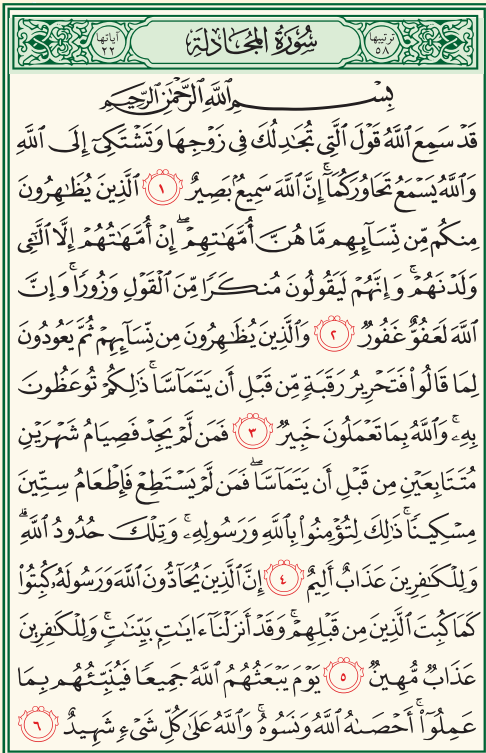 ترتيبها ٥٨ سُورَةُ المُجَادلة آياتها ٢٢
بِسْمِ اللَّهِ الرَّحْمَٰنِ الرَّحِيمِ
قَدْ سَمِعَ اللَّهُ قَوْلَ الَّتِي تُجَٰدِلُكَ فِي زَوْجِهَا وَتَشْتَكِيٓ إِلَى اللَّهِ
وَاللَّهُ يَسْمَعُ تَحَاوُرَكُمَآ ۚ إِنَّ اللَّهَ سَمِيعٌۢ بَصِيرٌ ١ الَّذِينَ يُظَٰهِرُونَ
مِنكُم مِّن نِّسَآئِهِم مَّا هُنَّ أُمَّهَٰتِهِمْ ۖ إِنْ أُمَّهَٰتُهُمْ إِلَّا الَّٰٓـِٔي
وَلَدْنَهُمْ ۚ وَإِنَّهُمْ لَيَقُولُونَ مُنكَرًا مِّنَ الْقَوْلِ وَزُورًا ۚ وَإِنَّ
اللَّهَ لَعَفُوٌّ غَفُورٌ ٢ وَالَّذِينَ يُظَٰهِرُونَ مِن نِّسَآئِهِمْ ثُمَّ يَعُودُونَ
لِمَا قَالُوا۟ فَتَحْرِيرُ رَقَبَةٍ مِّن قَبْلِ أَن يَتَمَآسَّا ۚ ذَٰلِكُمْ تُوعَظُونَ
بِهِۦ ۚ وَاللَّهُ بِمَا تَعْمَلُونَ خَبِيرٌ ٣ فَمَن لَّمْ يَجِدْ فَصِيَامُ شَهْرَيْنِ
مُتَتَابِعَيْنِ مِن قَبْلِ أَن يَتَمَآسَّا ۖ فَمَن لَّمْ يَسْتَطِعْ فَإِطْعَامُ سِتِّينَ
مِسْكِينًا ۚ ذَٰلِكَ لِتُؤْمِنُوا۟ بِاللَّهِ وَرَسُولِهِۦ ۚ وَتِلْكَ حُدُودُ اللَّهِ ۗ
وَلِلْكَٰفِرِينَ عَذَابٌ أَلِيمٌ ٤ إِنَّ الَّذِينَ يُحَآدُّونَ اللَّهَ وَرَسُولَهُۥ كُبِتُوا۟
كَمَا كُبِتَ الَّذِينَ مِن قَبْلِهِمْ ۚ وَقَدْ أَنزَلْنَآ ءَايَٰتٍۭ بَيِّنَٰتٍ ۚ وَلِلْكَٰفِرِينَ
عَذَابٌ مُّهِينٌ ٥ يَوْمَ يَبْعَثُهُمُ اللَّهُ جَمِيعًا فَيُنَبِّئُهُم بِمَا
عَمِلُوٓا۟ ۚ أَحْصَىٰهُ اللَّهُ وَنَسُوهُ ۚ وَاللَّهُ عَلَىٰ كُلِّ شَيْءٍ شَهِيدٌ ٦